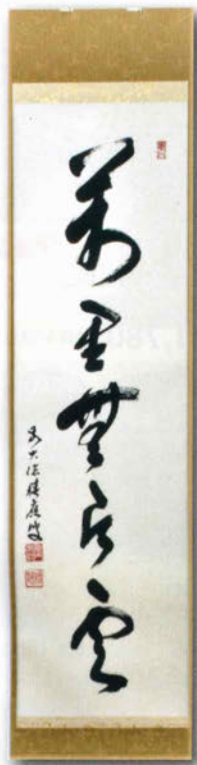 萬里無片雲
前大徳積應叟